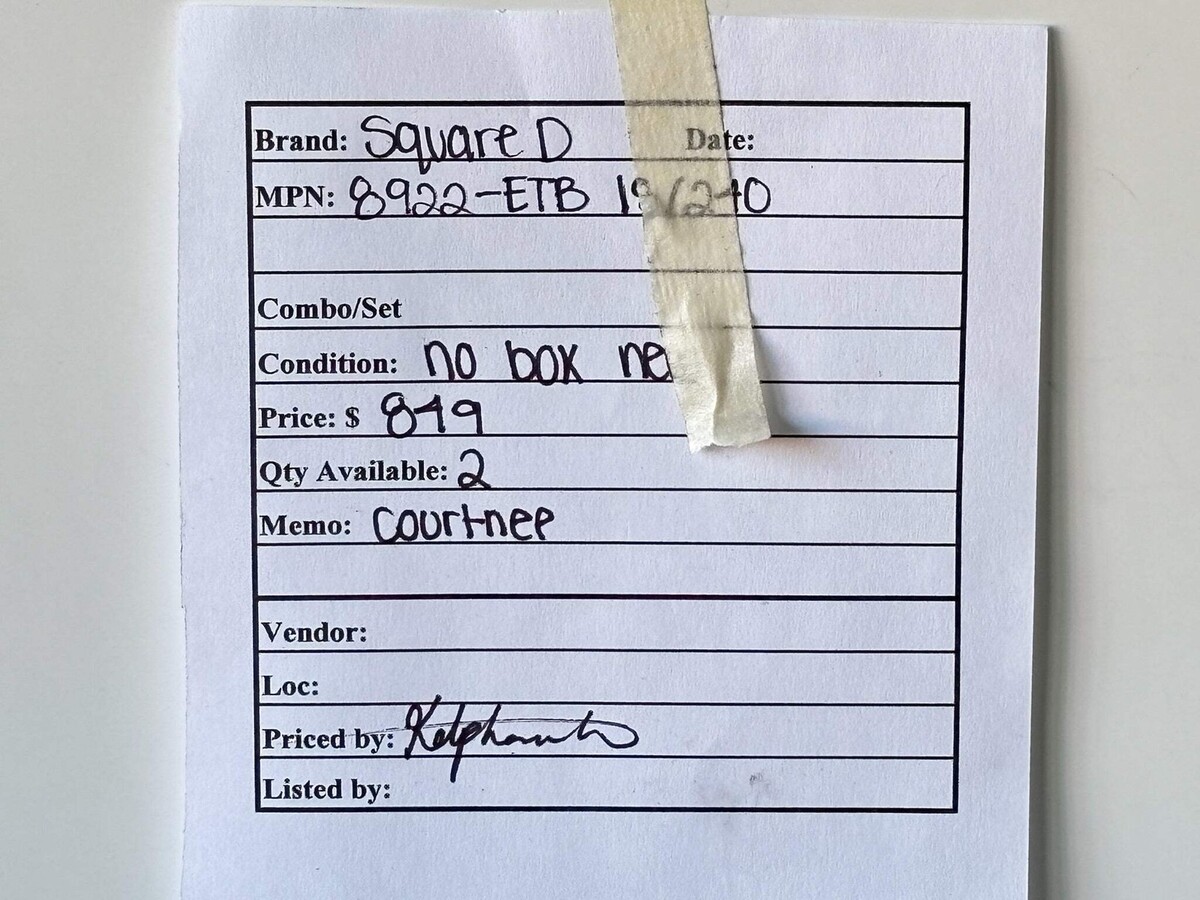 Brand: Square D Date:
MPN: 8922-ETB
Combo/Set
Condition: no box ne
Price: $ 849
Qty Available: 2
Memo: Courtnee
Vendor:
Loc:
Priced by:
Listed by: